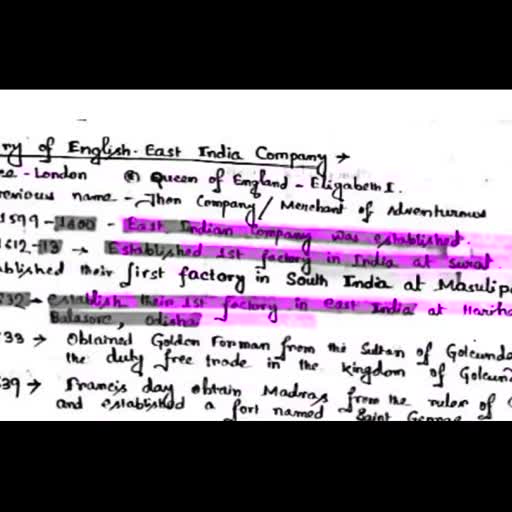 ry of English East India Company →
ce - London Queen of England - Eligabeth I.
revious name - Jhon Company / Merchant of Adventurous
1599 - 1600 - East Indian Company was established.
1612 - 13 → Established 1st factory in India at Surat
ablished their first factory in South India at Masulip
32 - establish their 1st factory in east India at Hariha
Balasore, Odisha
33 → Obtained Golden Forman from the Sultan of Golcunda
the duty free trade in the kingdom of Golcund
39 → Francis day obtain Madras from the ruler of
and established a fort named Saint George